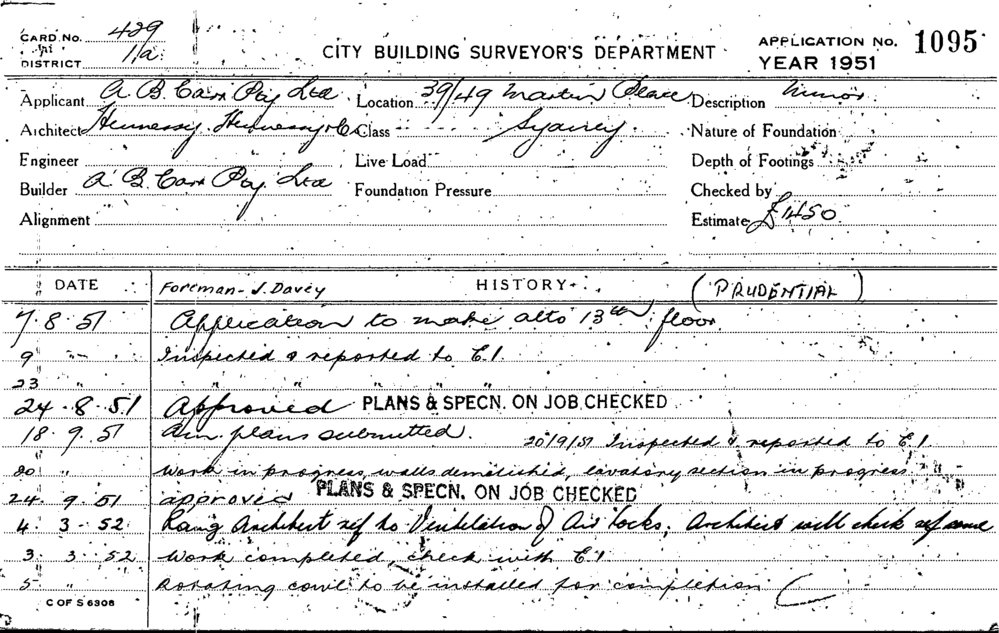 CARD No. 429
DISTRICT 1/a
CITY BUILDING SURVEYOR'S DEPARTMENT
APPLICATION No. 1095
YEAR 1951
Applicant A. B. Carr Pty Ltd Location 39/49 Martin Place Description Minor
Architect Hennessy. Hennessy & Co Class Sydney. Nature of Foundation
Engineer Live Load Depth of Footings
Builder A. B. Carr Pty Ltd Foundation Pressure Checked by
Alignment Estimate £1450
DATE Foreman - J. Davey HISTORY (PRUDENTIAL)
7. 8. 51 Application to make alts 13th floor
9 " Inspected & reported to E.I.
23 " " " " " "
24. 8. 51 Approved PLANS & SPECN. ON JOB CHECKED
18. 9. 51 Am. plans submitted. 20/9/51 Inspected & reported to E.I
20 " Work in progress, walls demolished, lavatory section in progress
24. 9. 51 approved PLANS & SPECN. ON JOB CHECKED
4. 3. 52 Rang Architect ref to Ventilation of Air locks. Architect will check ref same
3. 3. 52 Work completed, check with E.I.
5 " Rotating cowl to be installed for completion
C OF S 6308